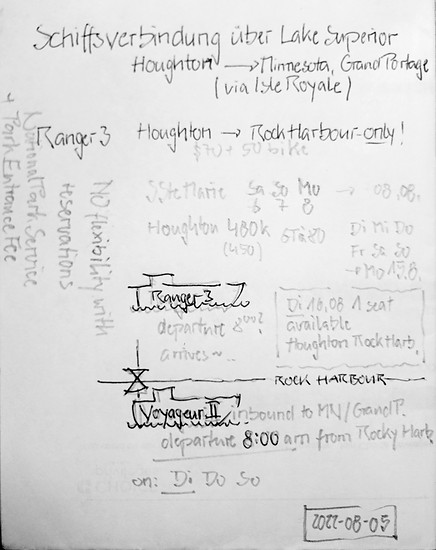 Schiffsverbindung über Lake Superior
Houghton → Minnesota, Grand Portage
(via Isle Royale)
Ranger 3 Houghton → Rock Harbour - only!
$70 + 50 bike
National Park Service
+ Park Entrance Fee
NO flexibility with
reservations
S Ste Marie Sa So Mo → 08.08.
6 7 8
Houghton 480k 6Tà80 Di Mi Do
(450) Fr Sa So
→ Mo 15.8.
Ranger 3
departure 8⁰⁰?
arrives ~..
Di 16.08 1 seat
available
Houghton Rock Harb.
ROCK HARBOUR
Voyageur II inbound to MN/Grand P.
departure 8:00 am from Rocky Harb.
on: Di Do So
2022-08-05